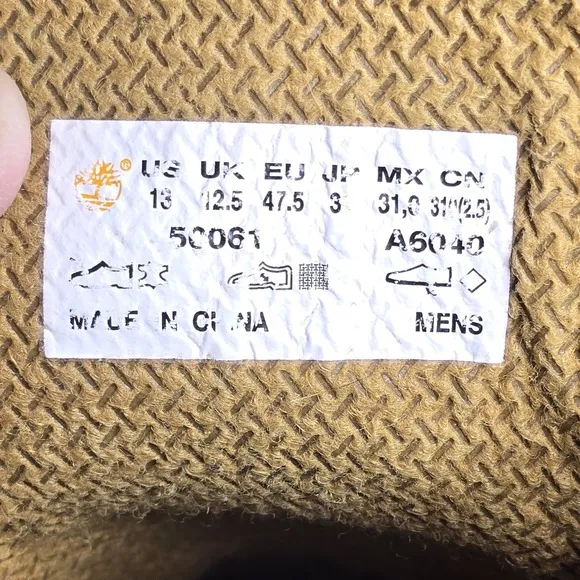 ® US UK EU JP MX CN
13 12.5 47.5 3 31,0 310(2.5)
50061 A6040
MADE IN CHINA MENS